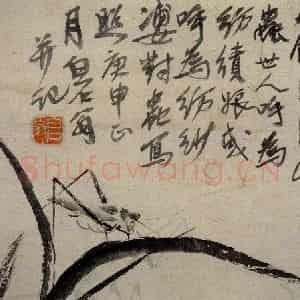 世人呼為
紡績娘或
呼為紡紗
婆對蟲寫
照庚申正
月白石翁
并記
Shufawang.CN